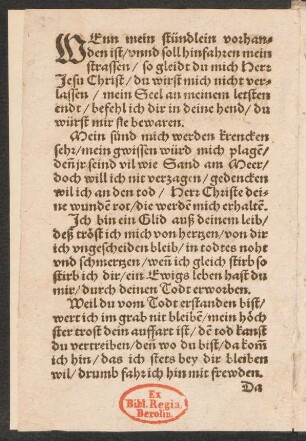 WEnn mein stündlein vorhan-
den ist/vnnd soll hinfahren mein
strassen/ so gleidt du mich Herr
Jesu Christ/ du wirst mich nicht ver-
lassen/ mein Seel an meinem letsten
endt/ befehl ich dir in deine hend/ du
würst mir sie bewaren.
Mein sünd mich werden krencken
sehr/ mein gwissen würd mich plagẽ/
deñ jr seind vil wie Sand am Meer/
doch will ich nit verzagen/ gedencken
wil ich an den tod/ Herr Christe dei-
ne wundẽ rot/die werdẽ mich erhaltẽ.
Ich bin ein Glid auß deinem leib/
deß tröst ich mich von hertzen/von dir
ich vngescheiden bleib/ in todtes noht
vnd schmertzen/ weñ ich gleich stirb so
stirb ich dir/ ein Ewigs leben hast du
mir/ durch deinen Todt erworben.
Weil du vom Todt erstanden bist/
werd ich im grab nit bleibẽ/mein höch
ster trost dein auffart ist/ dẽ tod kanst
du vertreiben/deñ wo du bist/da kom̃
ich hin/ das ich stets bey dir bleiben
wil/ drumb fahr ich hin mit frewden.
Da
Ex
Bibl. Regia
Berolin.